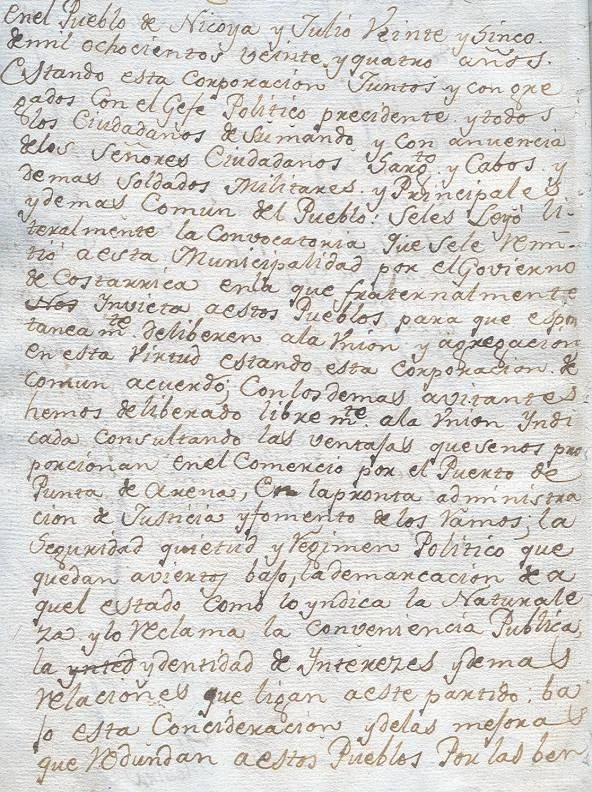 Enel Pueblo de Nicoya y Julio Veinte y Sinco.
de mil ochocientos veinte y quatro años.
Estando esta corporacion Juntos y con gre
gados Con el Gefe Politico precidente y todos
los Ciudadanos de Sumando y con anuencia
delos Señores Ciudadanos Sargto. y Cabos. y
demas Soldados Militares. y Principales
y demas Comun del Pueblo. Seles Leyó li-
teralmente la Convocatoria que Sele remi-
tió aesta Municipalidad por el Govierno
de Costarrica enla que fraternalmente
Nos Invieta aestos Pueblos para que espon
taneamte. deliberen ala Union y agregacion
en esta Virtud estando esta corporacion de
comun acuerdo; Conlosdemas avitantes
hemos deliberado libremte. ala Union Yndi
cada Consultando las ventajas quesenos pro
porcionan en el Comercio por el Puerto de
Punta de Arena, En lapronta administra
cion de Justicia y fomento delos Ramos; la
Seguridad quietud y Regimen Politico que
quedan aviertos bajo, lademarcacion de a
quel estado Como lo yndica la Naturale
za y lo Reclama la conveniencia Publica,
la ynted ydentidad de Interezes ydemas
relaciones que ligan aeste partido: ba
jo esta Concideracion ydelas mejoras
que redundan aestos Pueblos Por las ben